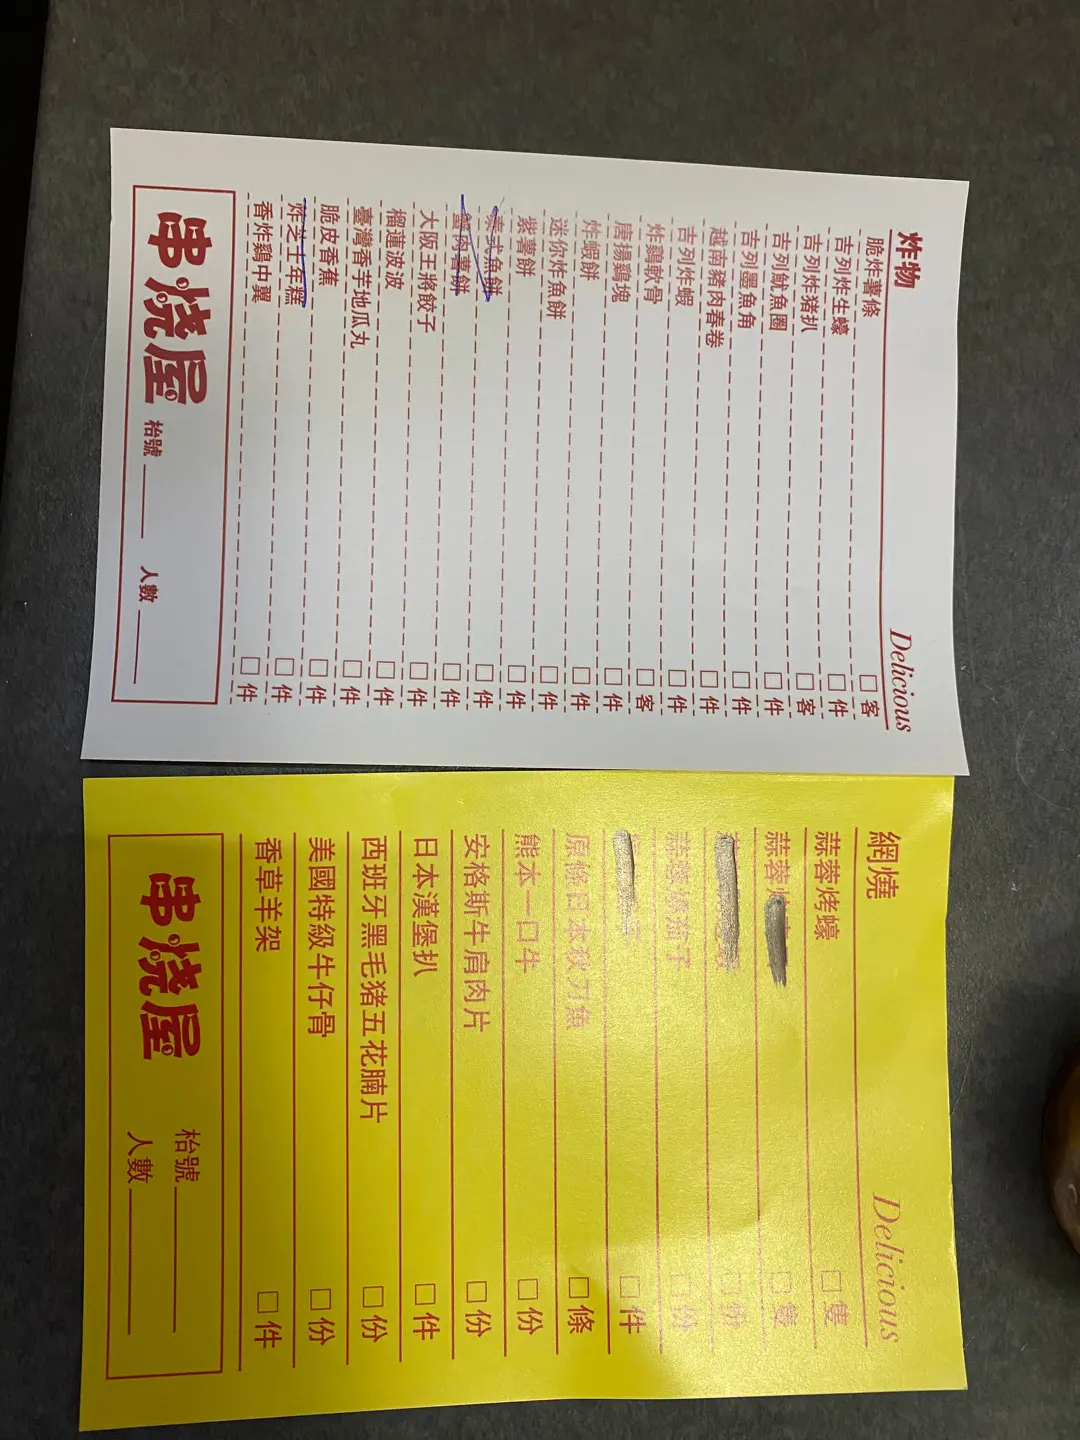 炸物 Delicious
脆炸薯條 □客
吉列炸生蠔 □件
吉列炸猪扒 □客
吉列魷魚圈 □件
吉列墨魚角 □件
越南豬肉春卷 □件
吉列炸蝦 □件
炸鷄軟骨 □客
唐揚鷄塊 □件
炸蝦餅 □件
迷你炸魚餅 □件
紫薯餅 □件
泰式魚餅 □件
蟹肉薯餅 □件
大阪王將餃子 □件
榴蓮波波 □件
臺灣香芋地瓜丸 □件
脆皮香蕉 □件
炸芝士年糕 □件
香炸鷄中翼 □件
串烧屋 枱號 人數
網燒 Delicious
蒜蓉烤蠔 □隻
蒜蓉 □隻
□份
蒜蓉燒茄子 □份
□件
原條日本秋刀魚 □條
熊本一口牛 □份
安格斯牛肩肉片 □份
日本漢堡扒 □件
西班牙黑毛猪五花腩片 □份
美國特級牛仔骨 □份
香草羊架 □件
串烧屋 枱號
人數